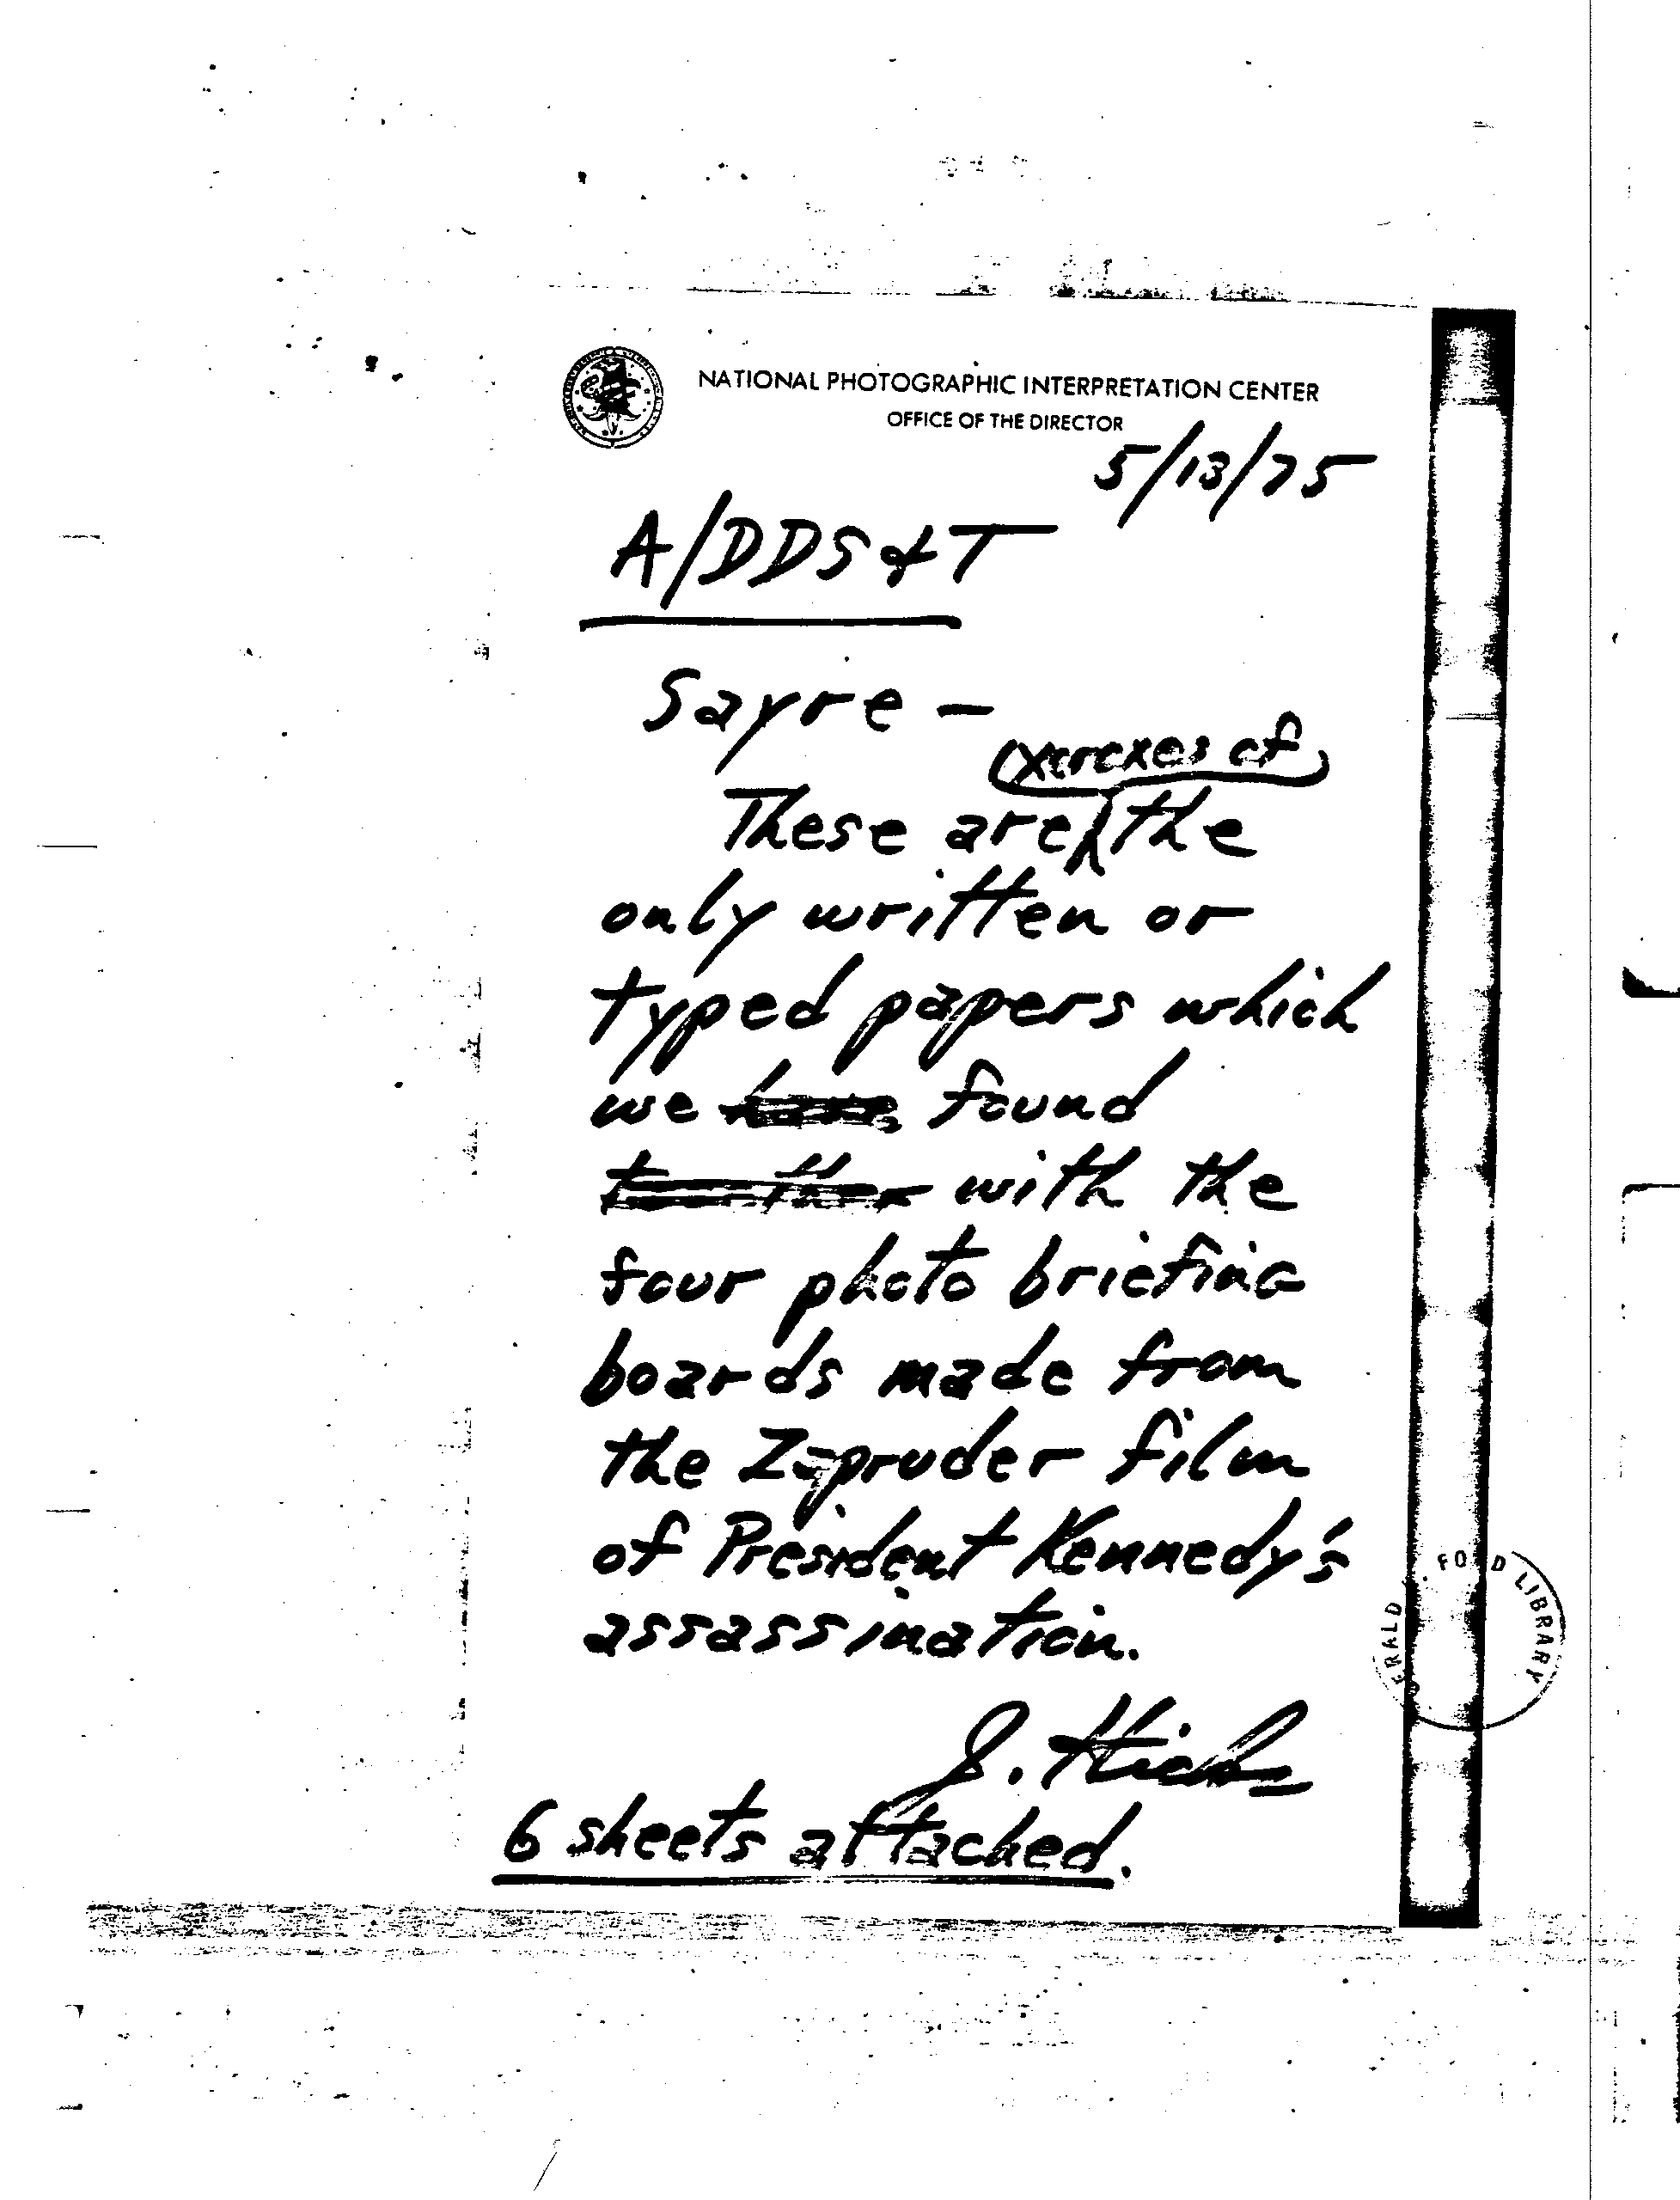 NATIONAL PHOTOGRAPHIC INTERPRETATION CENTER
OFFICE OF THE DIRECTOR
5/13/75
A/DDS&T
Sayre —
(xeroxes of)
These are the
only written or
typed papers which
we have found
together with the
four photo briefing
boards made from
the Zapruder film
of President Kennedy's
assassination.
J. Hicks
6 sheets attached.
ERALD FORD LIBRARY